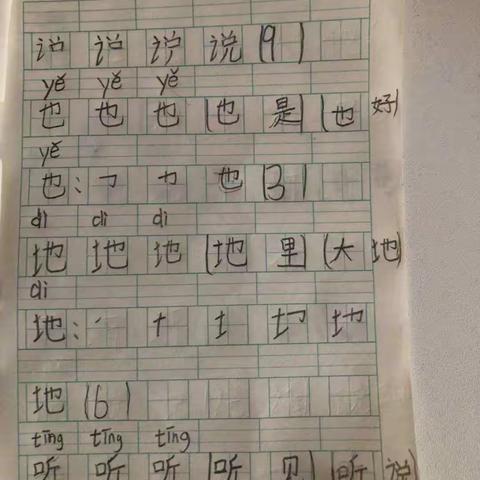 说 说 说 说 (9)
yě yě yě
也 也 也 (也 是) (也 好)
yě
也: ㇆ 也 (3)
dì dì dì
地 地 地 (地 里) (大 地)
dì
地: 地
地 (6)
tīng tīng tīng
听 听 听 (听 见) (听 说)